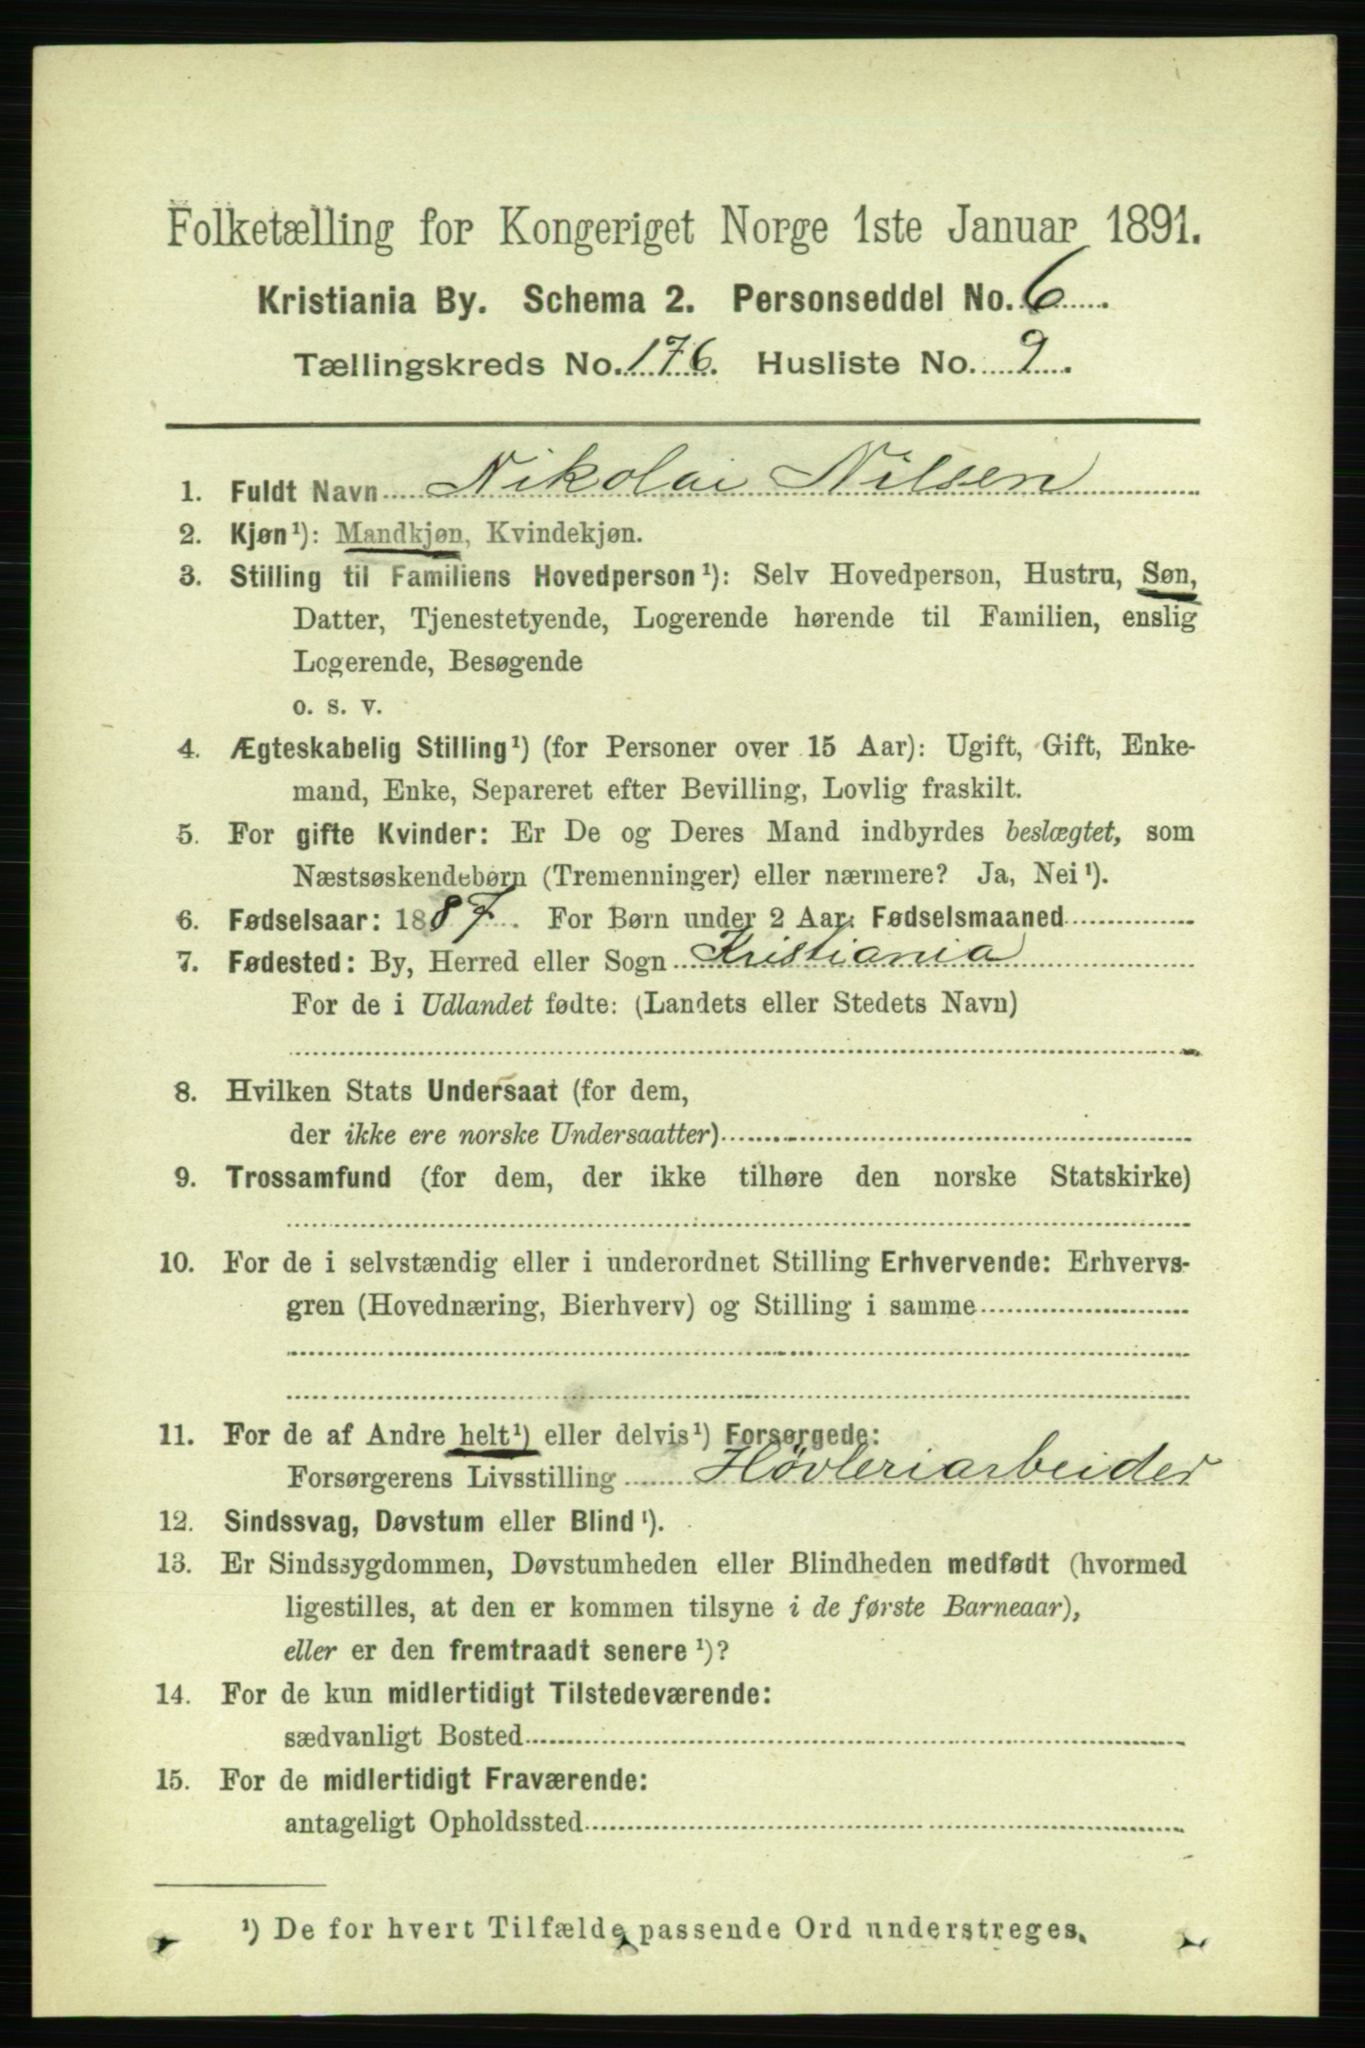 Folketælling for Kongeriget Norge 1ste Januar 1891.
Kristiania By. Schema 2. Personseddel No. 6
Tællingskreds No. 176. Husliste No. 9.
1. Fuldt Navn Nikolai Nilsen
2. Kjøn¹): Mandkjøn, Kvindekjøn.
3. Stilling til Familiens Hovedperson¹): Selv Hovedperson, Hustru, Søn,
Datter, Tjenestetyende, Logerende hørende til Familien, enslig
Logerende, Besøgende
o. s. v.
4. Ægteskabelig Stilling¹) (for Personer over 15 Aar): Ugift, Gift, Enke-
mand, Enke, Separeret efter Bevilling, Lovlig fraskilt.
5. For gifte Kvinder: Er De og Deres Mand indbyrdes beslægtet, som
Næstsøskendebørn (Tremenninger) eller nærmere? Ja, Nei¹).
6. Fødselsaar: 1887. For Børn under 2 Aar: Fødselsmaaned
7. Fødested: By, Herred eller Sogn Kristiania
For de i Udlandet fødte: (Landets eller Stedets Navn)
8. Hvilken Stats Undersaat (for dem,
der ikke ere norske Undersaatter)
9. Trossamfund (for dem, der ikke tilhøre den norske Statskirke)
10. For de i selvstændig eller i underordnet Stilling Erhvervende: Erhvervs-
gren (Hovednæring, Bierhverv) og Stilling i samme
11. For de af Andre helt¹) eller delvis¹) Forsørgede:
Forsørgerens Livsstilling Høvleriarbeider
12. Sindssvag, Døvstum eller Blind¹).
13. Er Sindssygdommen, Døvstumheden eller Blindheden medfødt (hvormed
ligestilles, at den er kommen tilsyne i de første Barneaar),
eller er den fremtraadt senere¹)?
14. For de kun midlertidigt Tilstedeværende:
sædvanligt Bosted
15. For de midlertidigt Fraværende:
antageligt Opholdssted
¹) De for hvert Tilfælde passende Ord understreges.